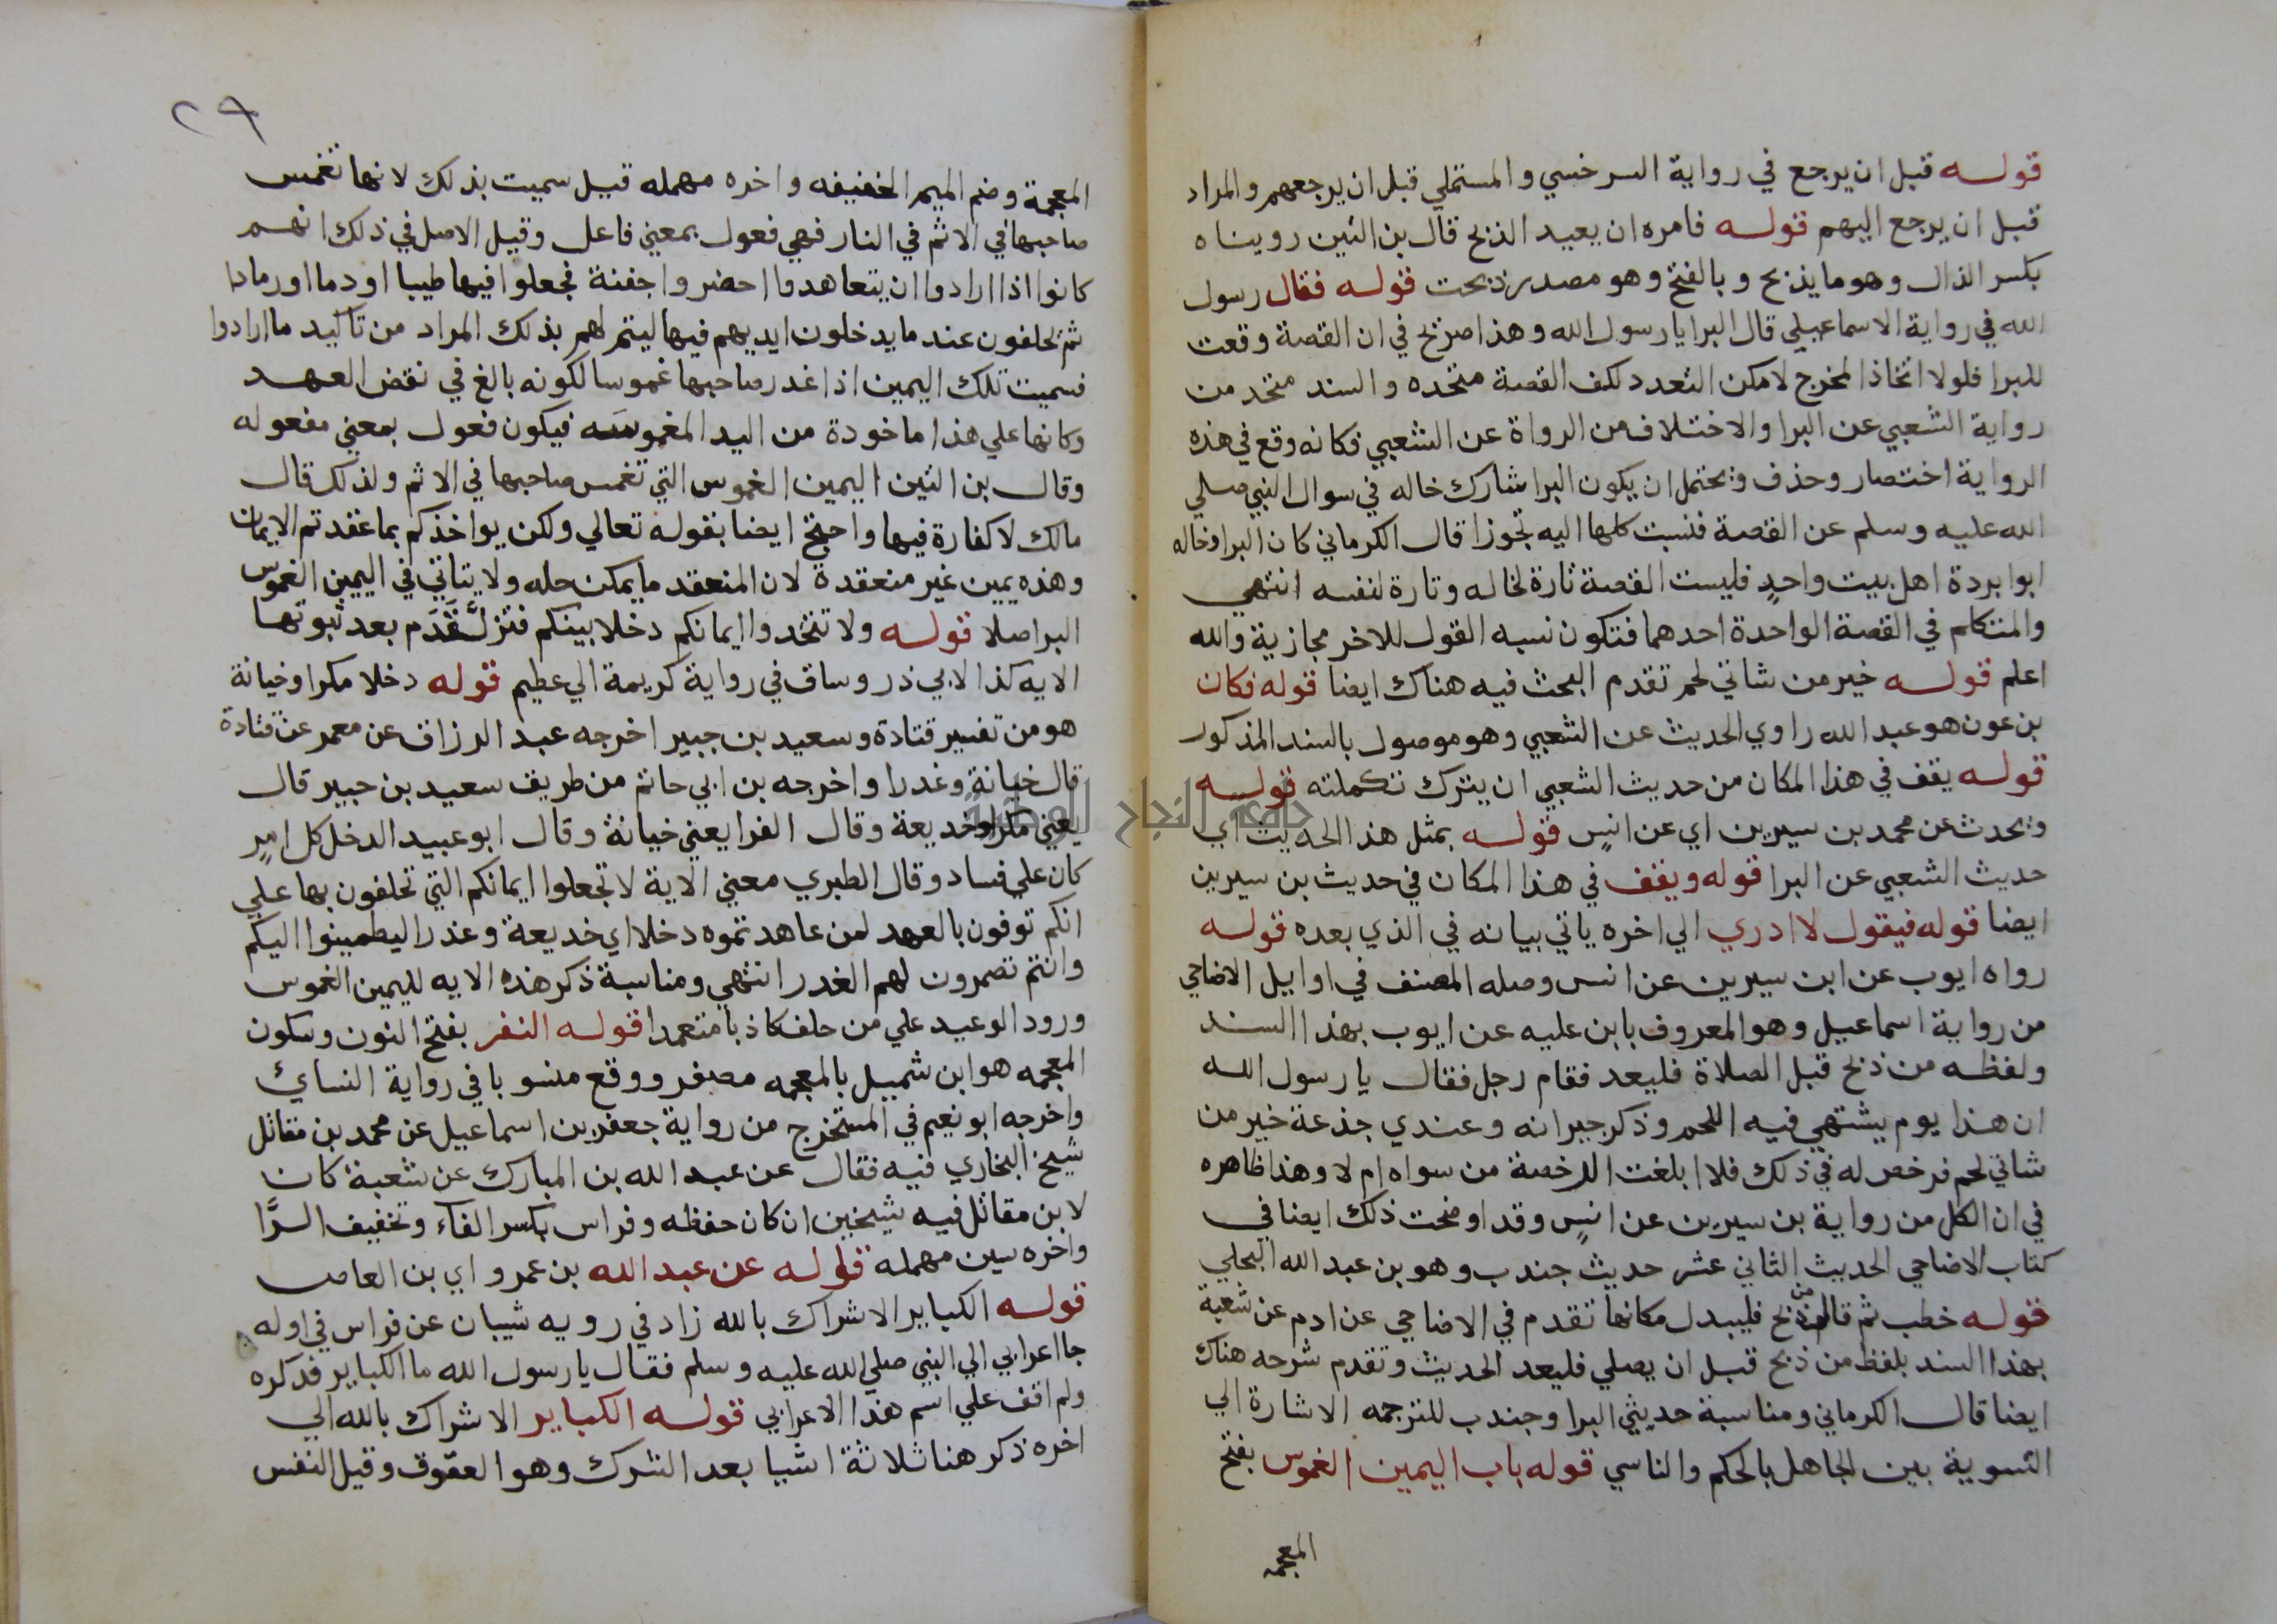 قوله قبل ان يرجع في رواية السرخسي والمستملي قبل ان يرجعهم والمراد
قبل ان يرجع اليهم قوله فامره ان يعيد الذبح قال بن التين رويناه
بكسر الذال وهو ما يذبح وبالفتح وهو مصدر ذبحت قوله فقال رسول
الله في رواية الاسماعيلي قال البرا يا رسول الله وهذا صريح في ان القصة وقعت
للبرا فلولا اتخاذ المخرج لامكن التعدد لكن القصة متحده والسند متحد من
رواية الشعبي عن البرا والاختلاف من الرواة عن الشعبي فكانه وقع في هذه
الرواية اختصار وحذف ويحتمل ان يكون البرا شارك خاله في سوال النبي صلي
الله عليه وسلم عن القصة فنسبت كلها اليه تجوزا قال الكرماني كان البرا وخاله
ابو ابردة اهل بيت واحد فليست القصة تارة لخاله وتارة لنفسه انتهي
والمتكلم في القصة الواحدة احدهما فتكون نسبه القول للاخر مجازية والله
اعلم قوله خير من شاتي لحم تقدم البحث فيه هناك ايضا قوله فكان
بن عون هو عبد الله راوي الحديث عن الشعبي وهو موصول بالسند المذكور
قوله يقف في هذا المكان من حديث الشعبي ان يترك تكملته قوله
ويحدث عن محمد بن سيرين اي عن انس قوله بمثل هذا الحديث اي
حديث الشعبي عن البرا قوله ويقف في هذا المكان في حديث بن سيرين
ايضا قوله فيقول لا ادري الي اخره ياتي بيانه في الذي بعده قوله
رواه ايوب عن ابن سيرين عن انس وصله المصنف في اوايل الاضاحي
من رواية اسماعيل وهو المعروف بابن عليه عن ايوب بهذا السند
ولفظه من ذبح قبل الصلاة فليعد فقام رجل فقال يا رسول الله
ان هذا يوم يشتهي فيه اللحم وذكر جيرانه وعندي جذعة خير من
شاتي لحم فرخص له في ذلك فلا ابلغت الرخصة من سواه ام لا وهذا ظاهره
في ان الكل من رواية بن سيرين عن انس وقد اوضحت ذلك ايضا في
كتاب الاضاحي الحديث الثاني عشر حديث جندب وهو بن عبد الله البجلي
قوله خطب ثم قال من ذبح فليبدل مكانها تقدم في الاضاحي عن ادم عن شعبة
بهذا السند بلفظ من ذبح قبل ان يصلي فليعد الحديث وتقدم شرحه هناك
ايضا قال الكرماني ومناسبة حديثي البرا وجندب للترجمه الاشارة الي
التسوية بين الجاهل بالحكم والناسي قوله باب اليمين الغموس بفتح
المعجمه
٢٩
المعجمة وضم الميم الخفيفه واخره مهمله قيل سميت بذلك لانها تغمس
صاحبها في الاثم في النار فهي فعول بمعني فاعل وقيل الاصل في ذلك انهم
كانوا اذا ارادوا ان يتعاهدوا احضروا جفنة فجعلوا فيها طيبا او دما او رمادا
ثم يحلفون عند ما يدخلون ايديهم فيها ليتم لهم بذلك المراد من تاكيد ما ارادوا
فسميت تلك اليمين اذا غدر صاحبها غموسا لكونه بالغ في نقض العهد
وكانها علي هذا ماخودة من اليد المغموسه فيكون فعول بمعني مفعوله
وقال بن التين اليمين الغموس التي تغمس صاحبها في الاثم ولذلك قال
مالك لا كفارة فيها واحتج ايضا بقوله تعالي ولكن يواخذكم بما عقدتم الايمان
وهذه يمين غير منعقدة لان المنعقد ما يمكن حله ولا يتاتي في اليمين الغموس
البر اصلا قوله ولا تتخدوا ايمانكم دخلا بينكم فتزل قدم بعد ثبوتها
الايه كذا لابي ذر وساق في رواية كريمة الي عظيم قوله دخلا مكرا وخيانة
هو من تفسير قتادة وسعيد بن جبير اخرجه عبد الرزاق عن معمر عن قتادة
قال خيانة وغدرا واخرجه بن ابي حاتم من طريق سعيد بن جبير قال
يعني مكرا وخديعة وقال الفرا يعني خيانة وقال ابو عبيد الدخل كل امر
كان علي فساد وقال الطبري معني الاية لا تجعلوا ايمانكم التي تحلفون بها علي
انكم توفون بالعهد لمن عاهدتموه دخلا اي خديعة وغدرا ليطمينوا اليكم
وانتم تضمرون لهم الغدر انتهي ومناسبة ذكر هذه الايه لليمين الغموس
ورود الوعيد علي من حلف كاذبا متعمدا قوله النفر بفتح النون وسكون
المعجمه هو ابن شميل بالمعجمه مصغر ووقع منسوبا في رواية النساي
واخرجه ابو نعيم في المستخرج من رواية جعفر بن اسماعيل عن محمد بن مقاتل
شيخ البخاري فيه فقال عن عبد الله بن المبارك عن شعبة كان
لابن مقاتل فيه شيخين ان كان حفظه وفراس بكسر الفاء وتخفيف الرا
واخره سين مهمله قوله عن عبد الله بن عمرو اي بن العاص
قوله الكباير الاشراك بالله زاد في رويه شيبان عن فراس في اوله
جا اعرابي الي النبي صلي الله عليه وسلم فقال يا رسول الله ما الكباير فدكره
ولم اقف علي اسم هذا الاعرابي قوله الكباير الاشراك بالله الي
اخره ذكر هنا ثلاثة اشيا بعد الشرك وهو العقوق وقيل النفس
جامعة النجاح الوطنية